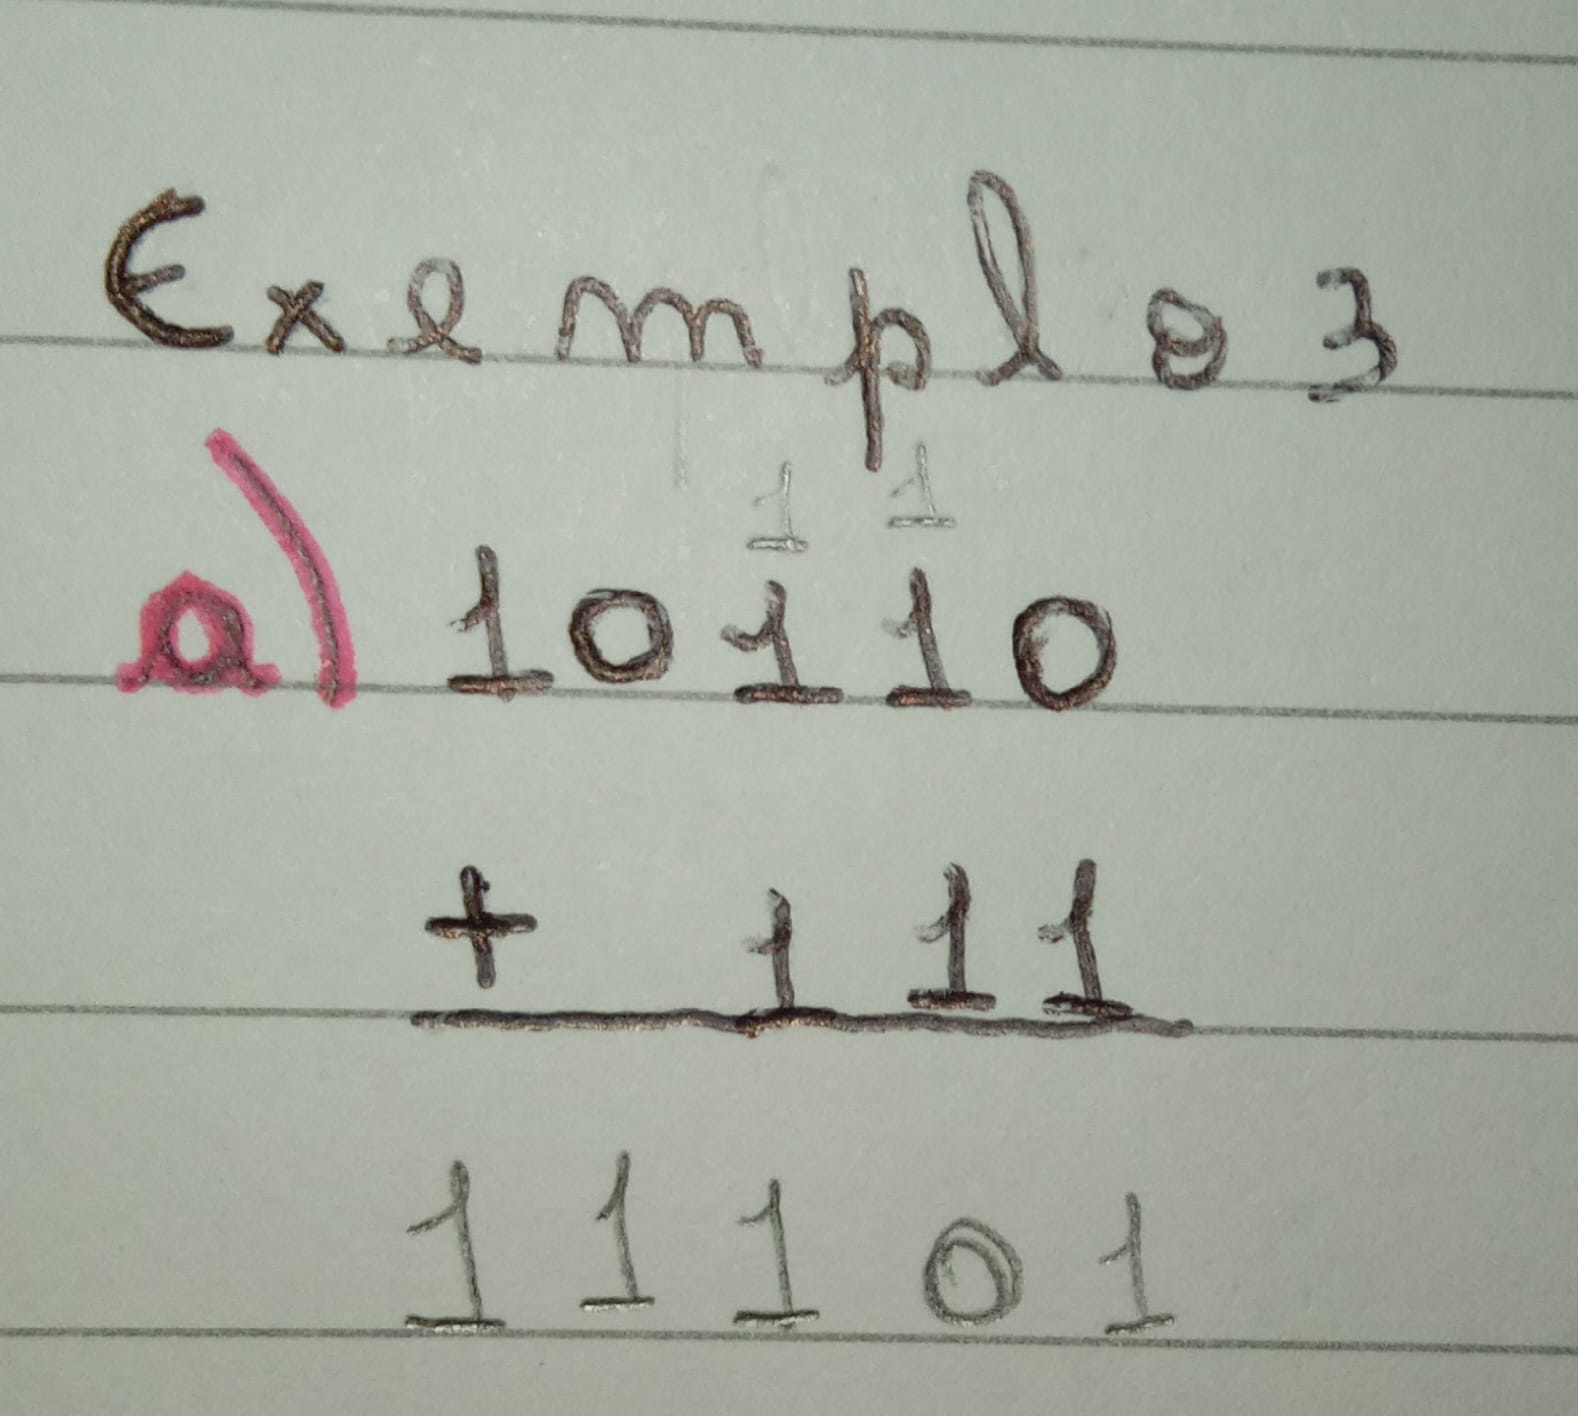 Exemplo 3
1 1
a) 10110
+ 111
11101